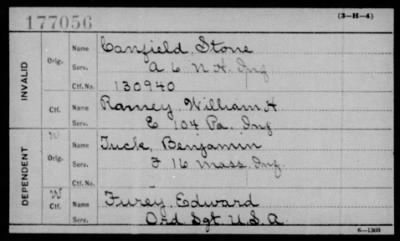 177056
(3-H-4)
INVALID
Orig.
Name Canfield, Stone
Serv. A 6 N.H. Inf
Ctf. No. 130940
Ctf.
Name Ramey, William H
Serv. E 104 Pa. Inf
DEPENDENT
W
Orig.
Name Tuck, Benjamin
Serv. F 16 Mass. Inf.
Ctf. No.
W
Ctf.
Name Furey, Edward
Serv. Ord Sgt. U.S.A.
6-1303